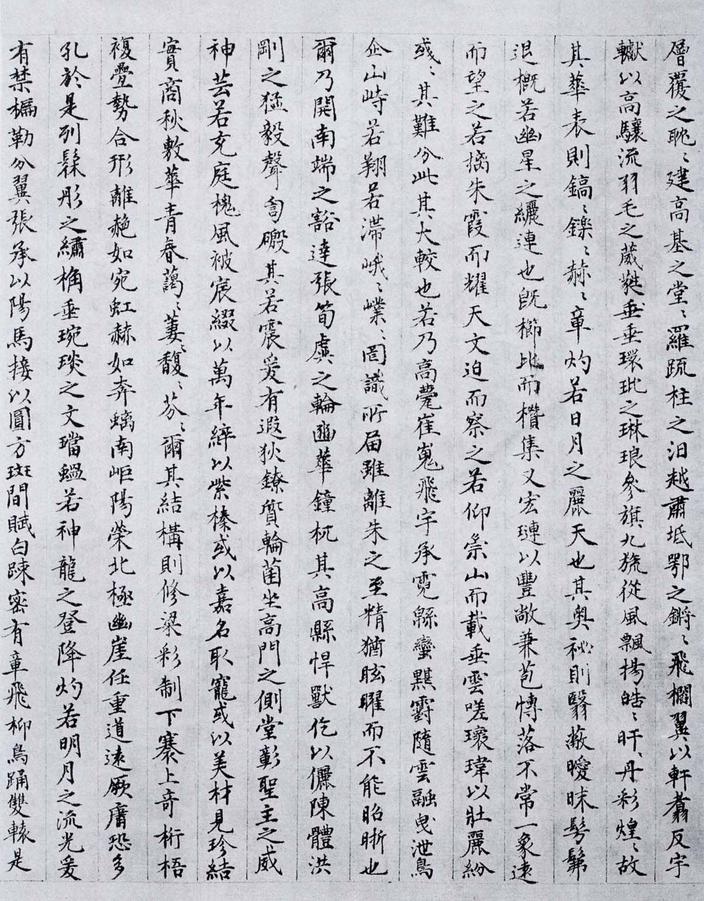 層覆之耽〻建高基之堂〻羅疏柱之汩越肅坻鄂之鏘〻飛櫩翼以軒翥反宇
以高驤流羽毛之葳蕤垂垂環玭之琳琅參旗九旒從風飄揚皓〻旰〻丹彩煌〻故
其華表則鎬〻鑠〻赫〻章灼若日月之麗天也其奥祕則翳蔽曖昧髣髴
退概若幽星之纚連也既櫛比而櫕集又宏璉以豐敞兼苞博落不常一象遠
而望之若摛朱霞而耀天文迫而察之若仰崇山而戴垂雲嗟瓌瑋以壯麗紛
彧〻其難分此其大較也若乃高甍崔嵬飛宇承霓緜蠻黮䨴隨雲融曳泄鳥
企山峙若翔若滯峨〻嶫〻罔識所届雖離朱之至精猶眩曜而不能昭晰也
爾乃開南端之豁達張筍虡之輪豳華鐘杌其高縣悍獸仡以儷陳體洪
剛之猛毅聲訇磤其若震爰有遐狄鐐質輪菌坐高門之側堂彰聖主之威
神芸若充庭槐風被宸綴以萬年綷以紫榛或以嘉名取寵或以美材見珍結
實商秋敷華青春藹〻萋〻馥〻芬〻爾其結構則修梁彩制下褰上奇桁梧
複疊勢合形離赩如宛虹赫如奔螭南岠陽榮北極幽崖任重道遠厥庸恐多
孔於是列髹彤之繡桷垂琬琰之文璫蝹若神龍之登降灼若明月之流光爰
有禁楄勒分翼張承以陽馬接以圓方斑間賦白疎密有章飛枊鳥踊雙轅是